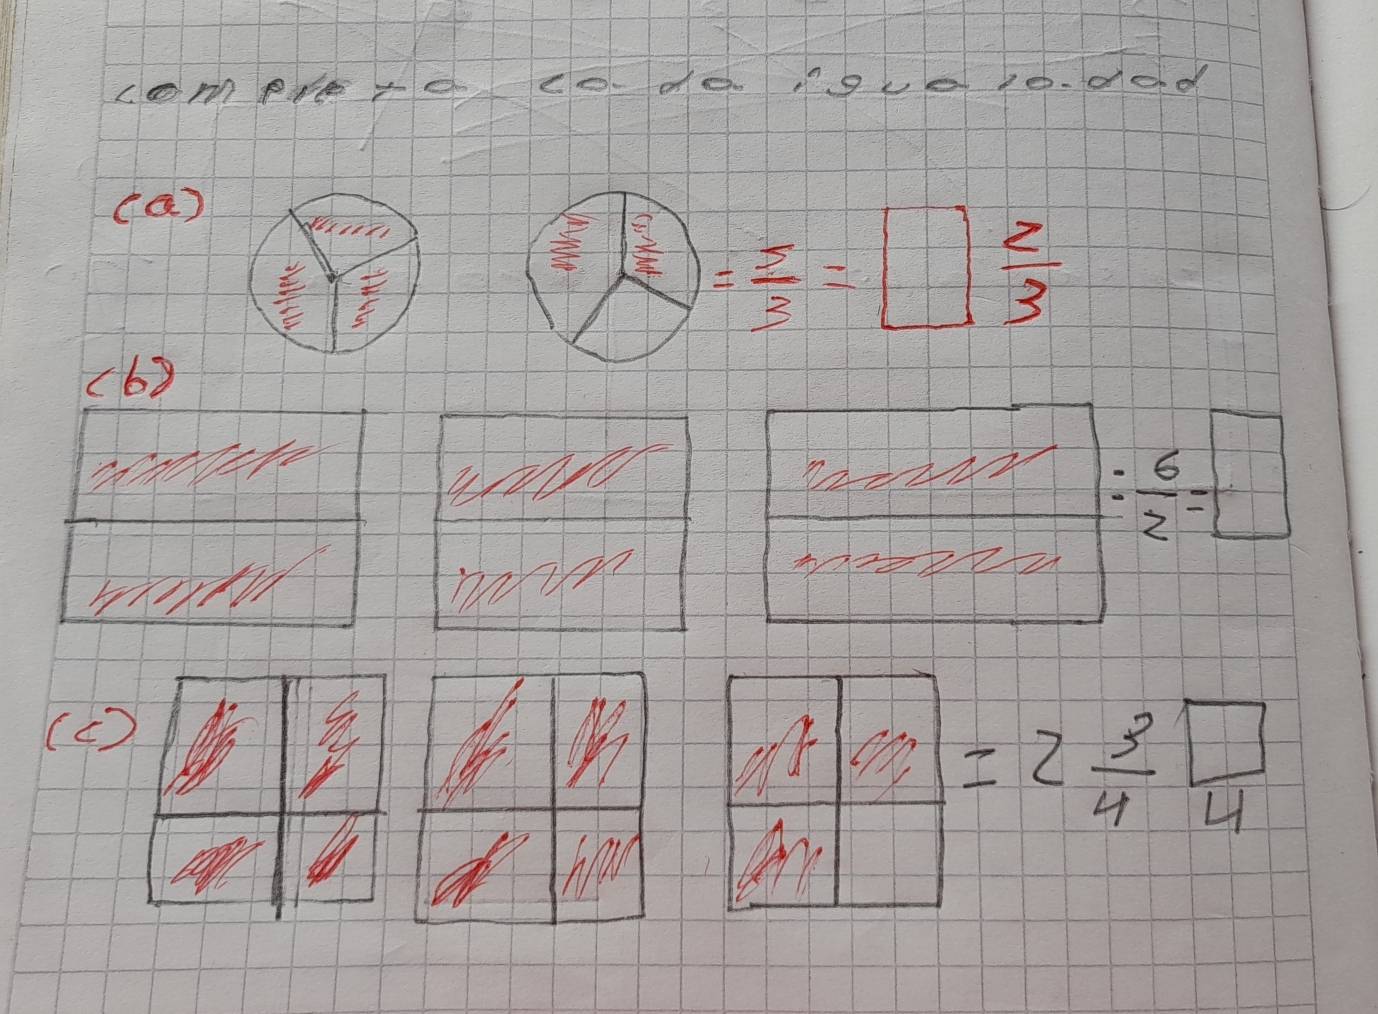 completa cada igualdad
(a) = 5/3 = 2/3
(b)
= 6/2 =
(c) = 2 3/4 4